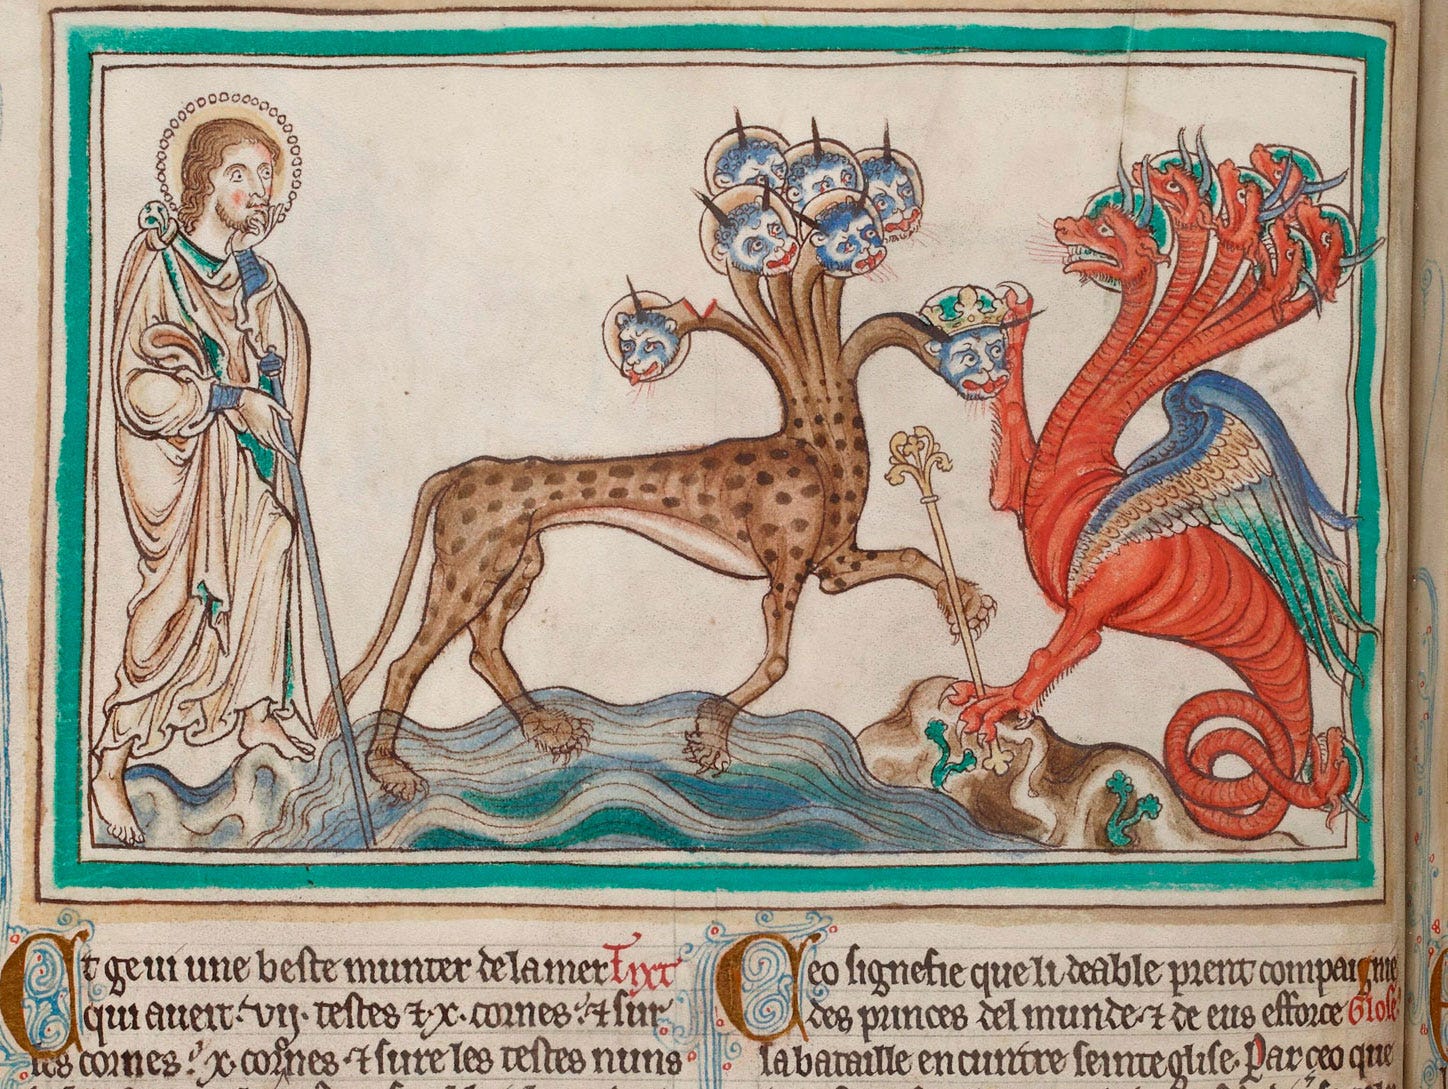 Et ge vi une beste munter de la mer Tixt
qui aveit .vij. testes ⁊ .x. cornes ⁊ sur
les cornes .x. cornes ⁊ sure les testes nuns
Ceo signefie que li deable prent compaignie
des princes del munde ⁊ de eus efforce Glose
la bataille encuntre seinte eglise. Par ceo que